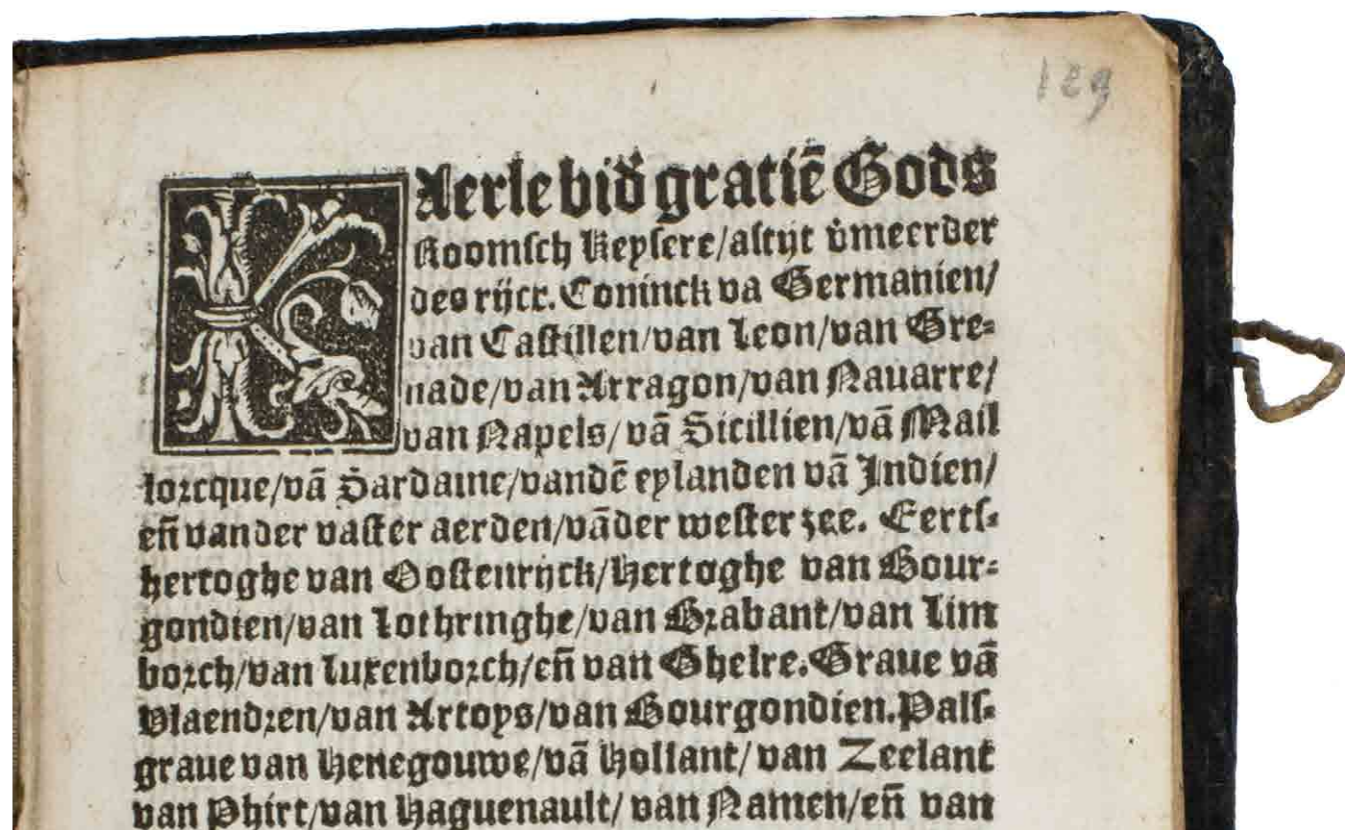 129
KAerle bid̄ gratiē Gods
Roomsch Keysere/altijt v̄meerder
des rijcx. Coninck vā Germanien/
van Castillen/van Leon/van Gre⸗
nade/van Arragon/van Nauarre/
van Napels/vā Sicillien/vā Mail
lorcque/vā Sardaine/vandē eylanden vā Indien/
eñ vander vaster aerden/vāder wester zee. Eerts⸗
hertoghe van Oostenrijck/Hertoghe van Bour⸗
gondien/van Lothringhe/van Brabant/van Lim
borch/van Luxenborch/eñ van Ghelre. Graue vā
Vlaendren/van Artoys/van Bourgondien. Pals⸗
graue van Henegouwe/vā Hollant/van Zeelant
van Phirt/van Haguenault/van Namen/eñ van